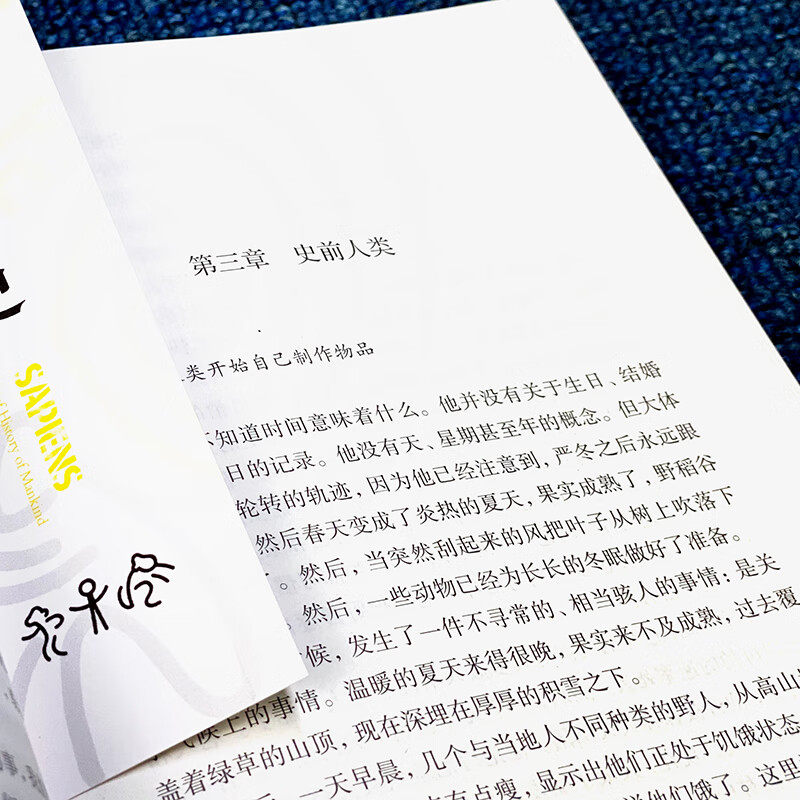 SAPIENS
of History of Mankind
第三章 史前人类
类开始自己制作物品
不知道时间意味着什么。他并没有关于生日、结婚
日的记录。他没有天、星期甚至年的概念。但大体
轮转的轨迹，因为他已经注意到，严冬之后永远跟
然后春天变成了炎热的夏天，果实成熟了，野稻谷
。然后，当突然刮起来的风把叶子从树上吹落下
然后，一些动物已经为长长的冬眠做好了准备。
候，发生了一件不寻常的、相当骇人的事情：是关
气候上的事情。温暖的夏天来得很晚，果实来不及成熟，过去覆
盖着绿草的山顶，现在深埋在厚厚的积雪之下。
一天早晨，几个与当地人不同种类的野人，从高山
有点瘦，显示出他们正处于饥饿状态
他们饿了。这里